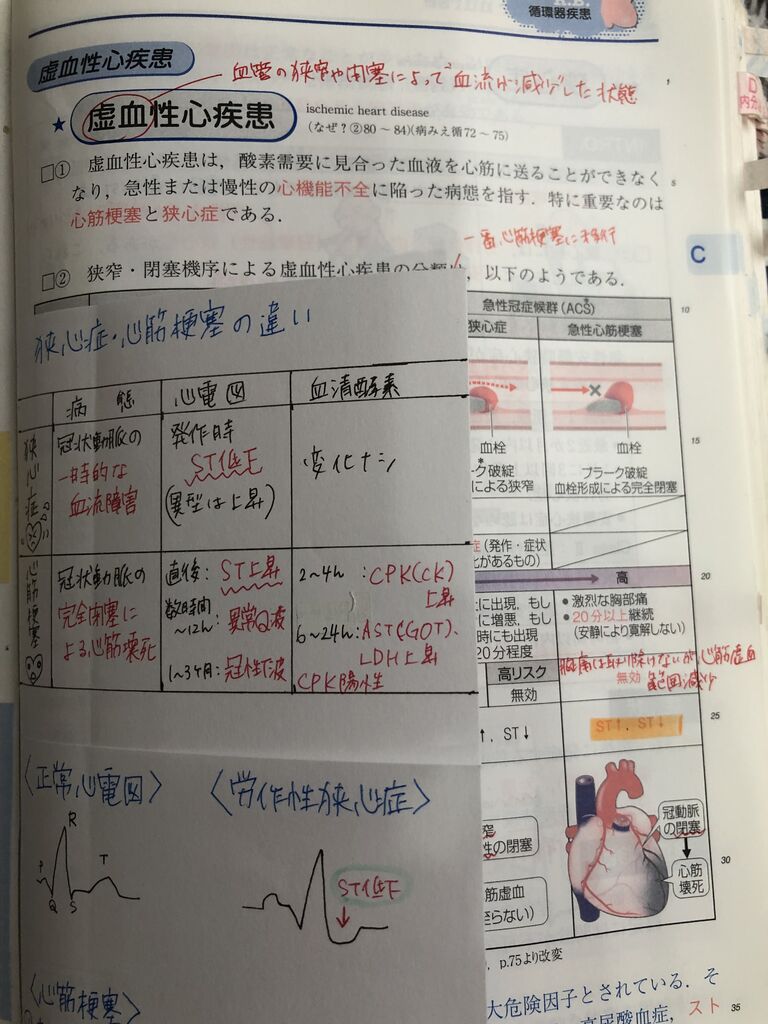 循環器疾患
虚血性心疾患
血管の狭窄や閉塞によって血流が減少した状態
★ 虚血性心疾患 ischemic heart disease
(なぜ?②80～84)(病みえ循72～75)
□① 虚血性心疾患は，酸素需要に見合った血液を心筋に送ることができなく
なり，急性または慢性の心機能不全に陥った病態を指す．特に重要なのは
心筋梗塞と狭心症である．
5
一番心筋梗塞に移行
C
□② 狭窄・閉塞機序による虚血性心疾患の分類は，以下のようである．
急性冠症候群(ACS)
10
狭心症
急性心筋梗塞
血栓
血栓
15
ク破綻
による狭窄
プラーク破綻
血栓形成による完全閉塞
症(発作・症状
があるもの)
高
20
に出現，もし
に増悪，もし
時にも出現
20分程度
• 激烈な胸部痛
• 20分以上継続
(安静により寛解しない)
高リスク
無効
無効
胸痛は取り除けないが心筋虚血
範囲減少
25
↑, ST↓
ST↑, ST↓
窄
性の閉塞
筋虚血
至らない)
冠動脈
の閉塞
心筋
壊死
30
, p.75より改変
大危険因子とされている．そ
高尿酸血症，スト
35
D
内分
狭心症・心筋梗塞の違い
病態
心電図
血清酵素
狭心症
冠状動脈の
一時的な
血流障害
発作時
ST低下
(異型は上昇)
変化ナシ
心筋梗塞
冠状動脈の
完全閉塞に
よる心筋壊死
直後: ST上昇
数時間
～12h: 異常Q波
1～3ヶ月: 冠性T波
2～4h: CPK(CK)
上昇
6～24h: AST(GOT)、
LDH上昇
CPK陽性
〈正常心電図〉
P
Q
R
S
T
〈労作性狭心症〉
ST低下
〈心筋梗塞〉